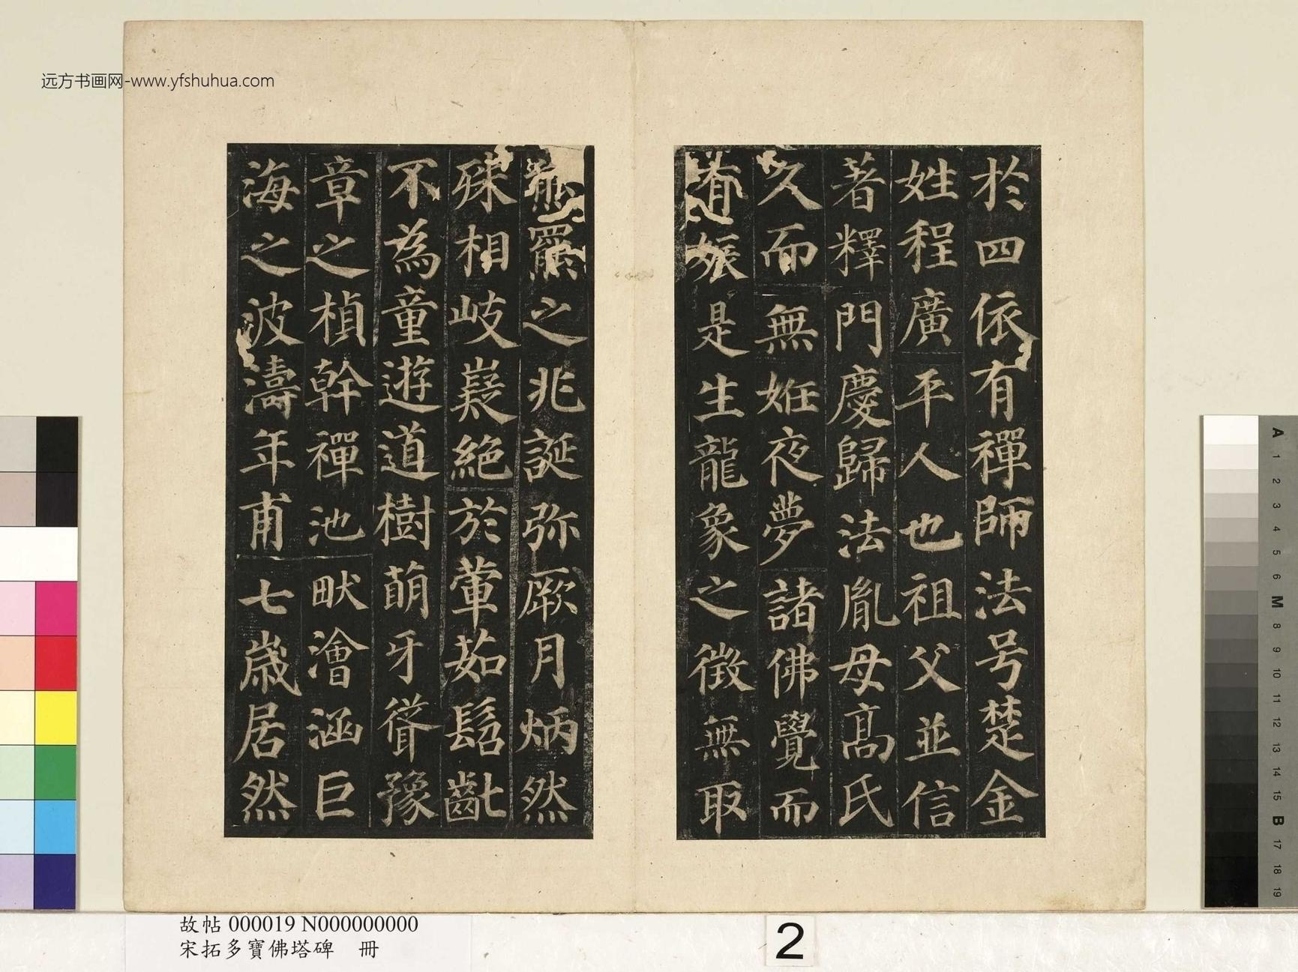 远方书画网-www.yfshuhua.com
於四依有禪師法号楚金
姓程廣平人也祖父並信
著釋門慶歸法胤母高氏
久而無姙夜夢諸佛覺而
有娠是生龍象之徵無取
熊羆之兆誕弥厥月炳然
殊相岐嶷絕於葷茹髫齔
不為童遊道樹萌牙聳豫
章之楨幹禪池畎澮涵巨
海之波濤年甫七歲居然
故帖 000019 N000000000
宋拓多寶佛塔碑 冊
2
A 1 2 3 4 5 6 M 8 9 10 11 12 13 14 15 B 17 18 19